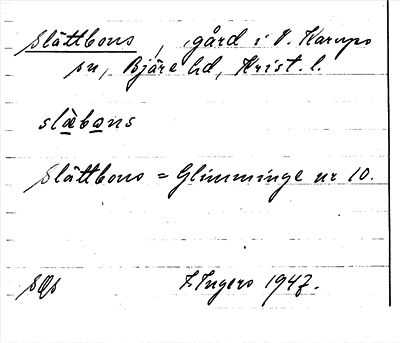 Slättbons, gård i V. Karups
sn, Bjäre hd, Krist. l.
slæ̀bans
Slättbons = Glimminge nr 10.
I. Ingers 1947.